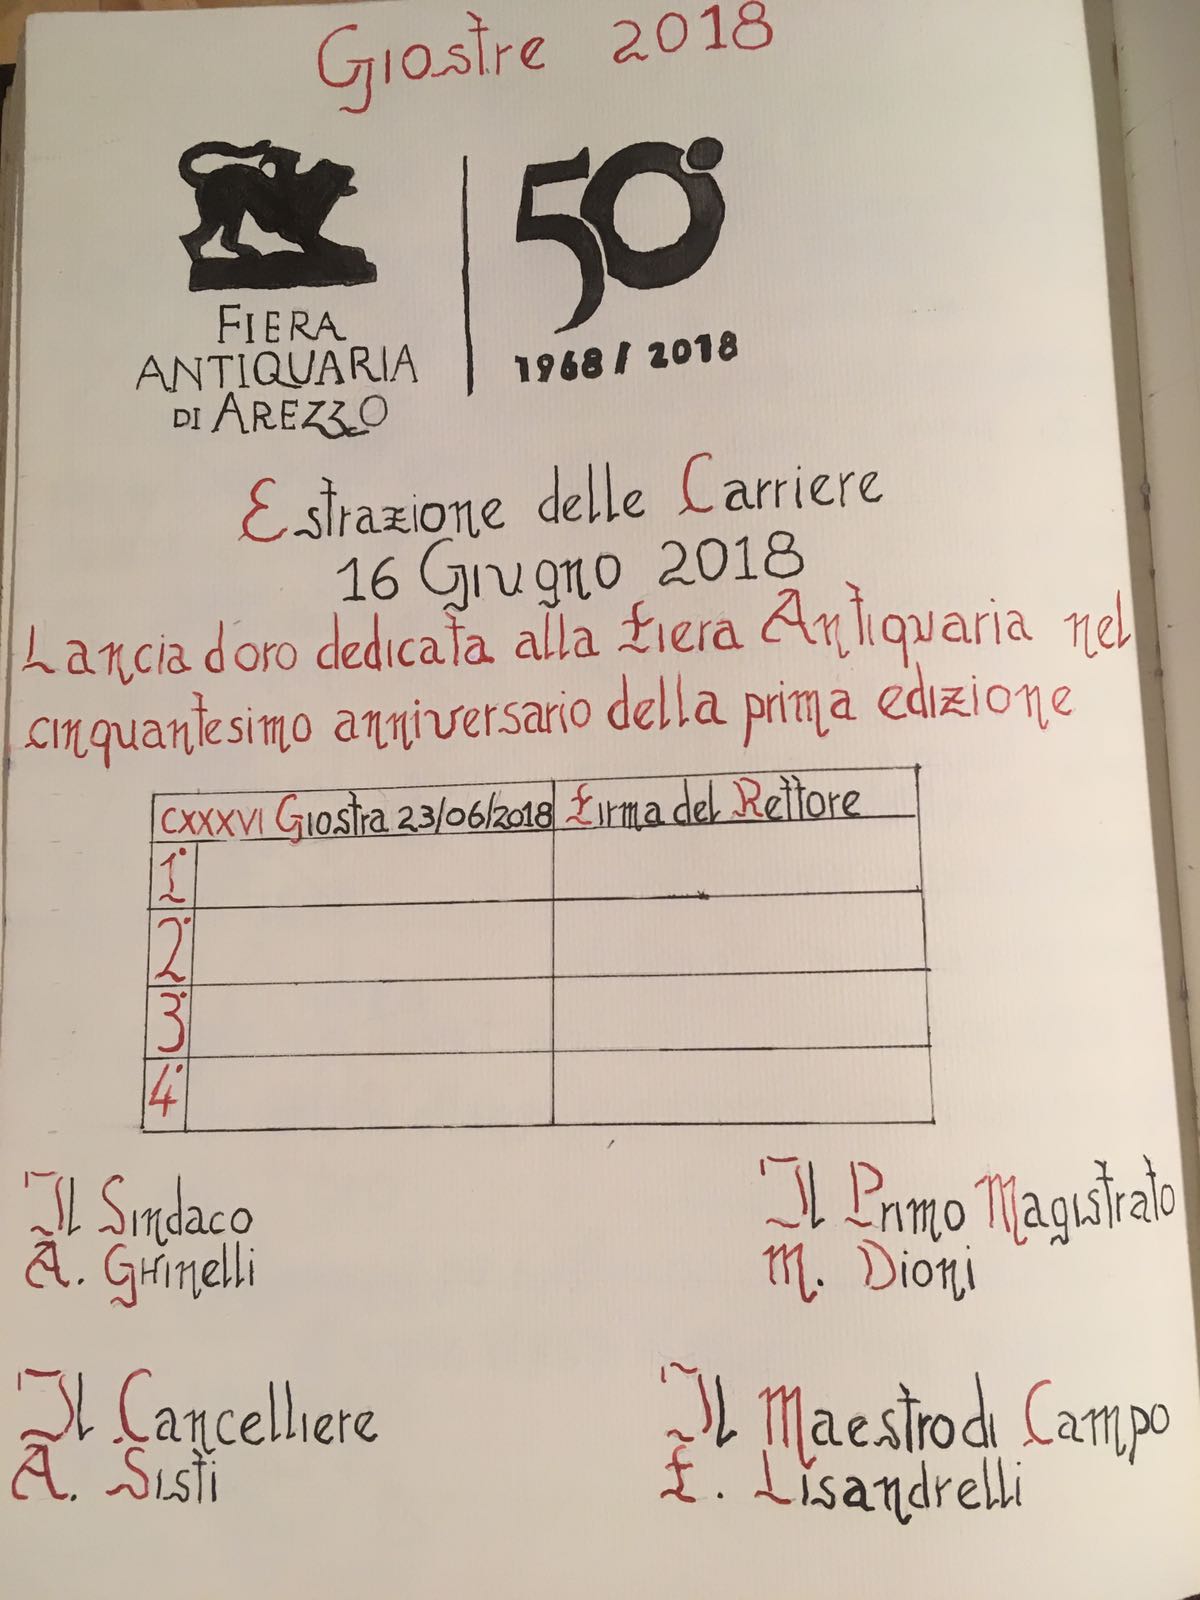 Giostre 2018
FIERA
ANTIQUARIA
DI AREZZO
50°
1968/2018
Estrazione delle Carriere
16 Giugno 2018
Lancia d'oro dedicata alla Fiera Antiquaria nel
cinquantesimo anniversario della prima edizione
CXXXVI Giostra 23/06/2018 Firma del Rettore
1°
2°
3°
4°
Il Sindaco
A. Ghinelli
Il Primo Magistrato
M. Dioni
Il Cancelliere
A. Sisti
Il Maestro di Campo
F. Lisandrelli